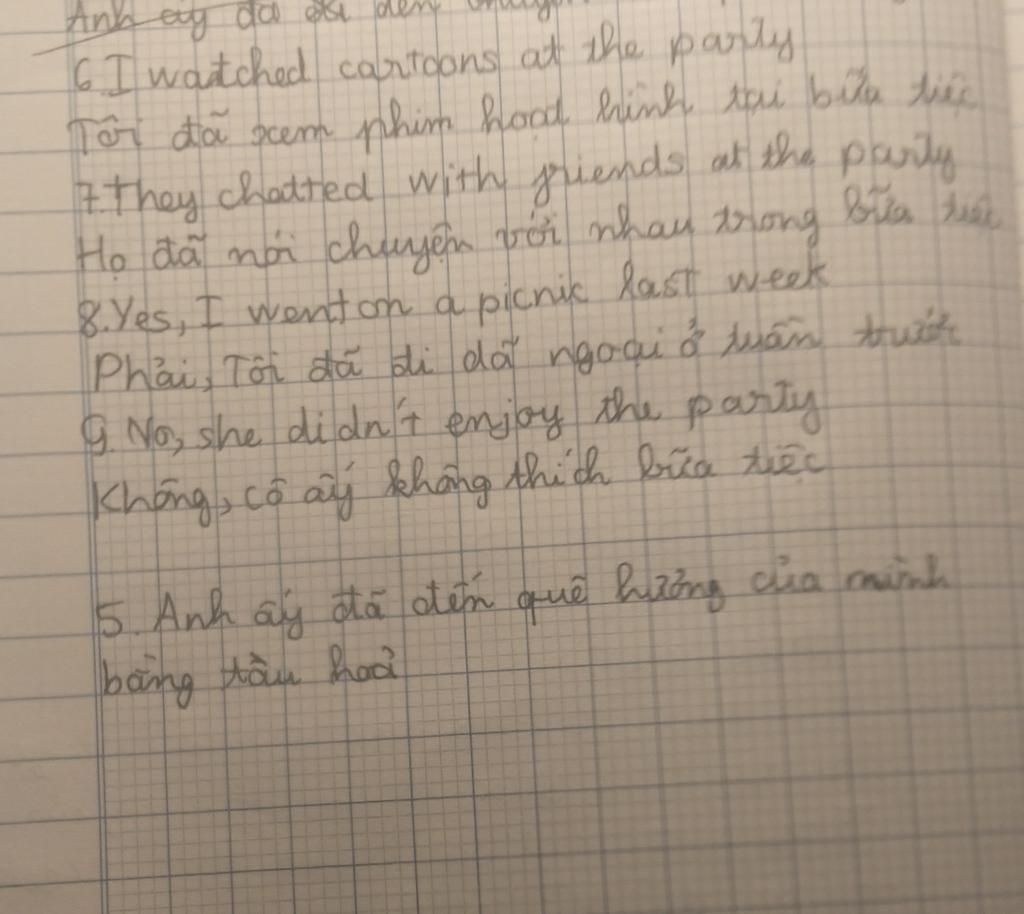 Anh ấy đã đi đến
6. I watched cartoons at the party
Tôi đã xem phim hoạt hình tại bữa tiệc
7. they chatted with friends at the party
Họ đã nói chuyện với nhau trong bữa tiệc
8. Yes, I went on a picnic last week
Phải, Tôi đã đi dã ngoại ở tuần trước
9. No, she didn't enjoy the party
Không, cô ấy không thích bữa tiệc
5. Anh ấy đã đến quê hương của mình
bằng tàu hoả